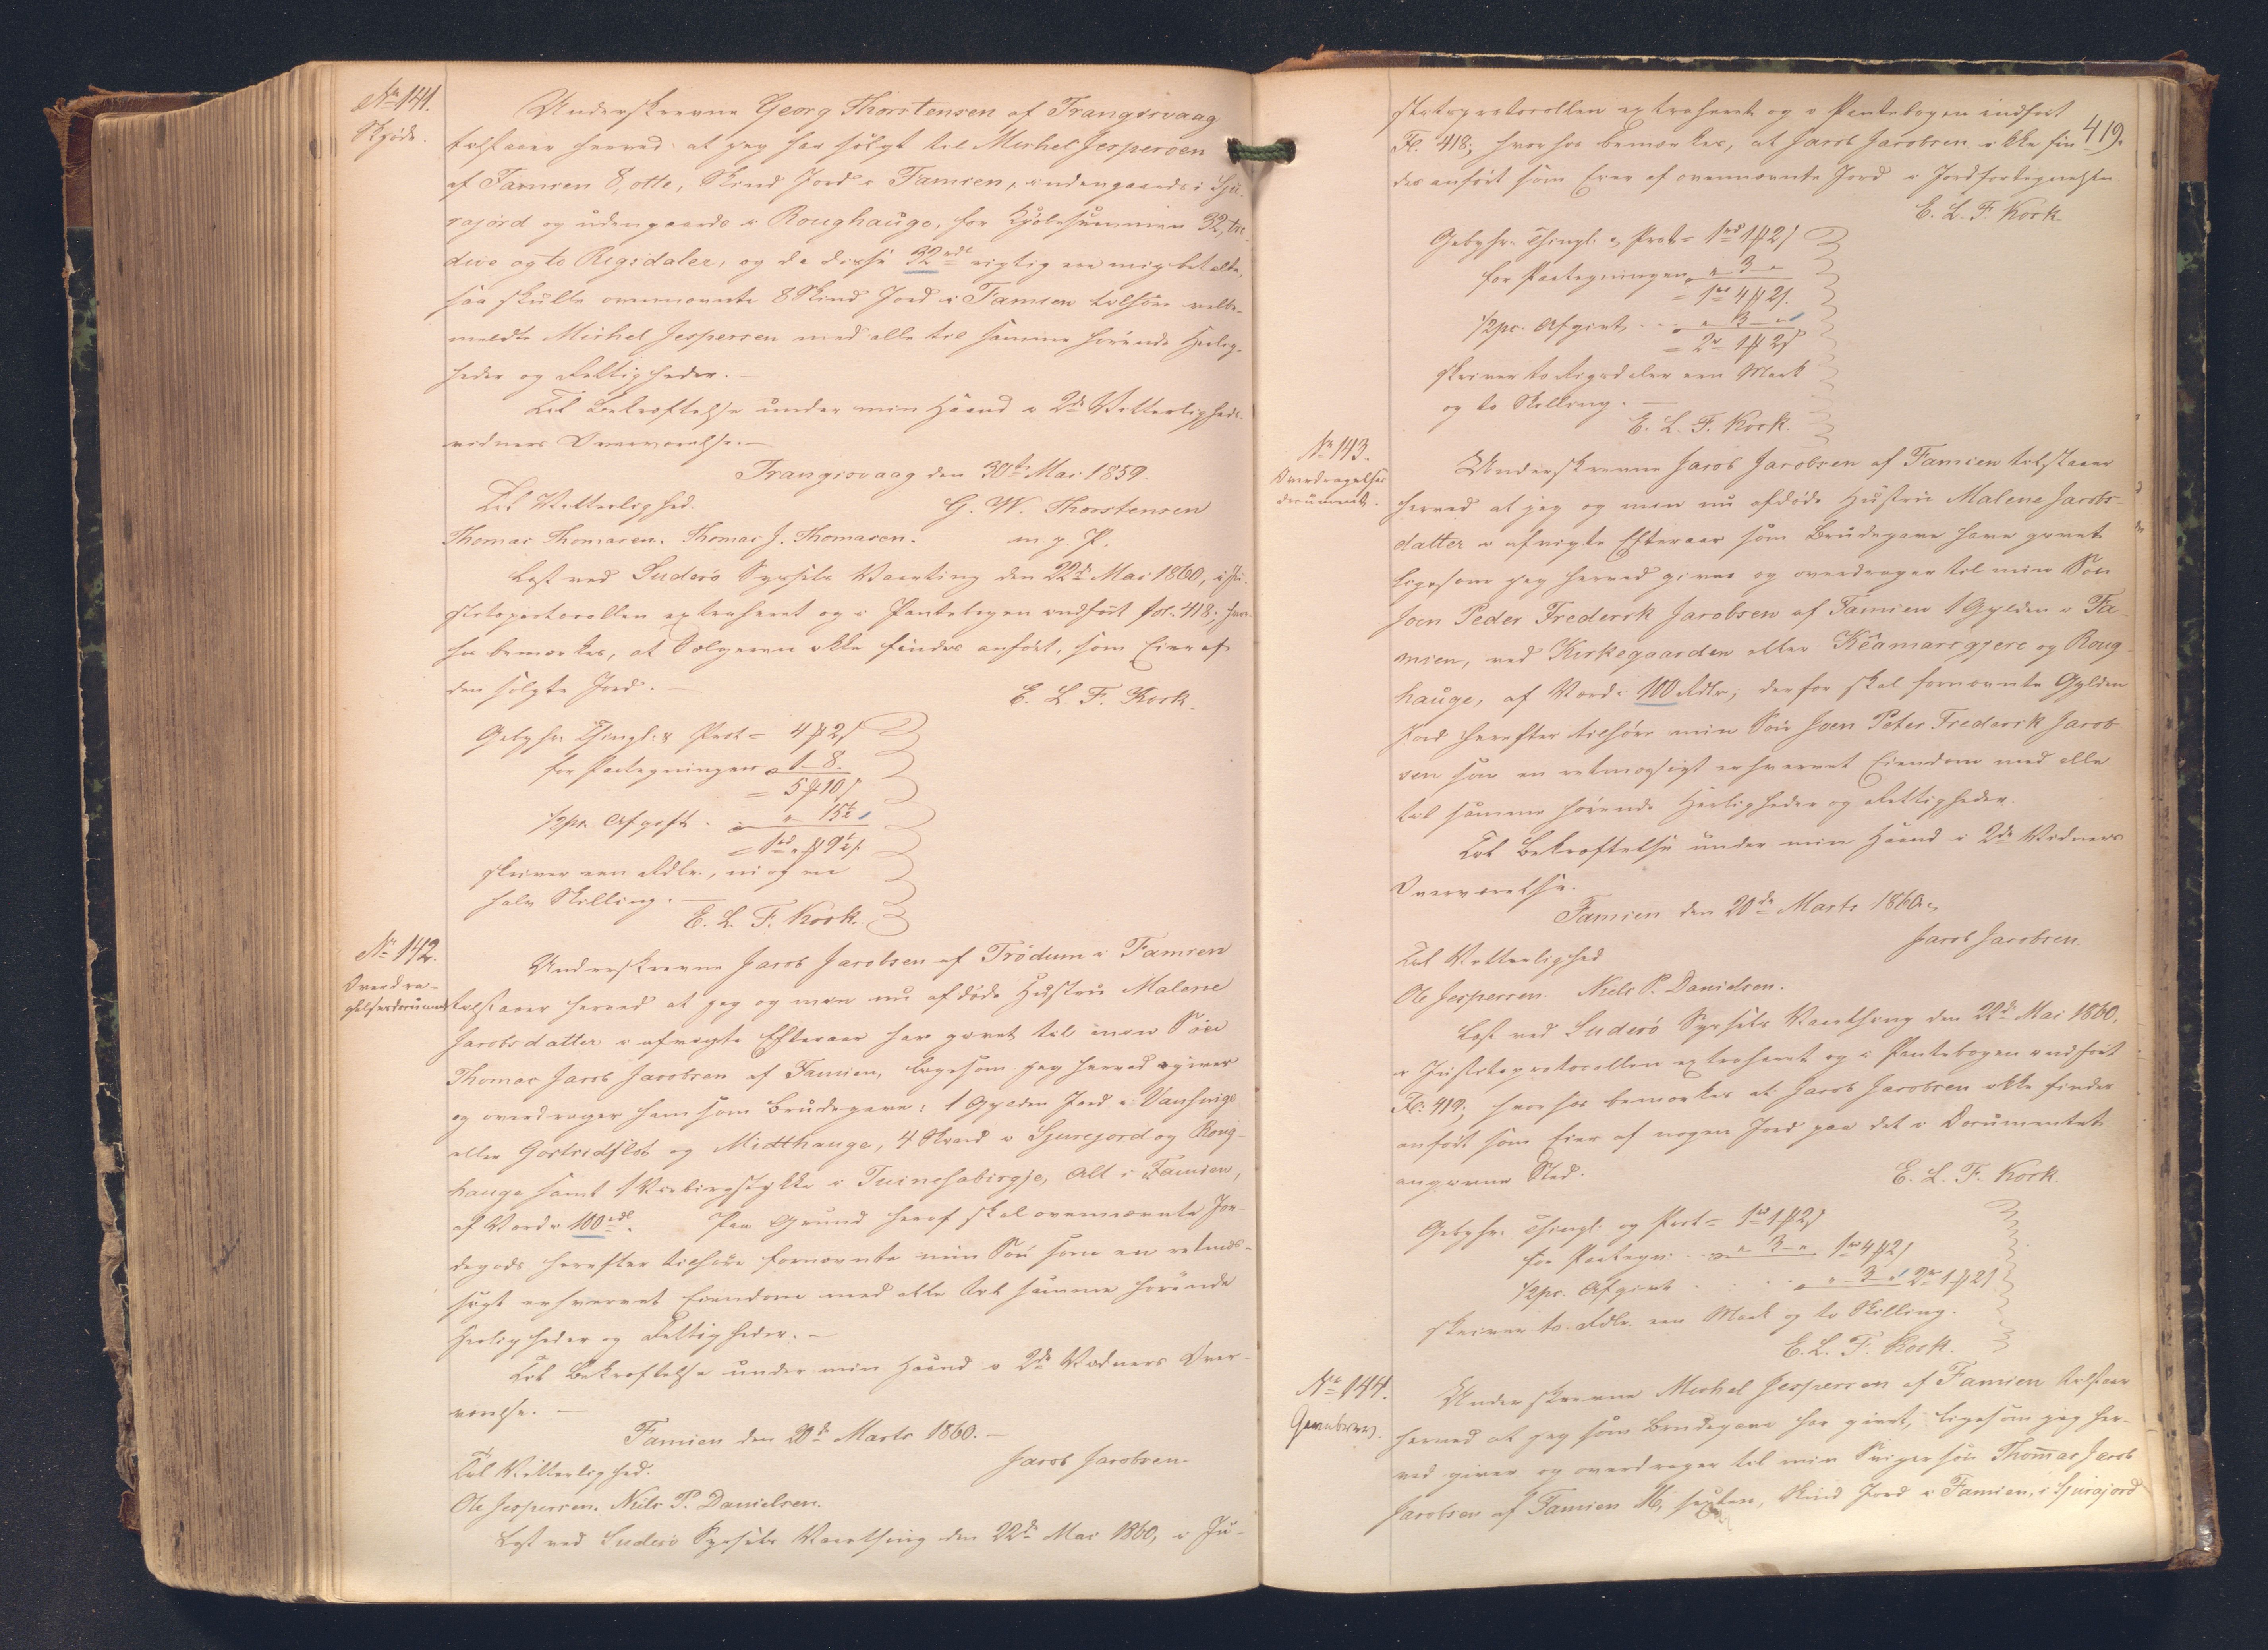 No 141.
Skjöde.
Underskrevne Georg Thorstensen af Trangisvaag
tilstaaer herved at jeg har solgt til Michel Jespersen
af Famien 8, otte, Skind Jord i Famien, indengaards i Sju-
rajord og udengaards i Roughauge, for Kjöbesummen 32, tre-
dive og to Rigsdaler, og da disse 32 rdl rigtig ere mig betalte,
saa skulle ovennævnte 8 Skind Jord i Famien tilhöre velbe-
meldte Michel Jespersen med alle til samme hörende Herlig-
heder og Rettigheder. –
Til Bekræftelse under min Haand i 2de Vitterligheds-
vidners Overværelse. –
Trangisvaag den 30te Mai 1859.
Til Vitterlighed.
G. W. Thorstensen
Thomas Thomasen. Thomas J. Thomasen.
m. p. P.
Læst ved Suderö Syssels Vaarting den 22de Mai 1860, i Ju-
stitsprotocollen extraheret og i Pantebogen indfört fol. 418; hvor-
hos bemærkes, at Sælgeren ikke findes anfört, som Eier af
den solgte Jord. –
E. L. F. Kock.
Gebyhr: Thingl: & Prot = 4 ƒ 2 s
for Paategningen = 1 - 8.
= 5 ƒ 10 s
1/2 pc. Afgift . = " 15½
= 1 rd " ƒ 9½ s.
skriver een Rdlr., ni og en
halv Skilling. –
E. L. F. Kock.
No 142.
Overdra-
gelsesdocument
Underskrevne Jacob Jacobsen af Trödum i Famien
tilstaaer herved at jeg og min nu afdöde Hustru Malene
Jacobsdatter i afvigte Efteraar har givet til min Sön
Thomas Jacob Jacobsen af Famien, ligesom jeg herved giver
og overdrager ham som Brudegave: 1 Gylden Jord i
eller og Midthauge, 4 Skind i Sjurejord og Roug-
hauge samt 1 i Tuinesabirgje, Alt i Famien,
af Værdi 100 rdl. Paa Grund heraf skal ovennævnte Jor-
degods herefter tilhöre fornævnte min Sön som en retmæs-
sigt erhvervet Eiendom med alle til samme hörende
Herligheder og Rettigheder. –
Til Bekræftelse under min Haand i 2de Vidners Over-
værelse. –
Famien den 20de Marts 1860. –
Til Vitterlighed.
Jacob Jacobsen.
Ole Jespersen. Niels P. Danielsen.
Læst ved Suderö Syssels Vaarthing den 22de Mai 1860, i Ju-
419.
stitsprotocollen extraheret og i Pantebogen indfört
Fl. 418; hvorhos bemærkes, at Jacob Jacobsen ikke fin-
des anfört som Eier af ovennævnte Jord i Jordfortegnelsen
E. L. F. Kock
Gebyhr: Thingl: & Prot = 1 rd 1 ƒ 2 s
for Paategningen " 3 "
= 1 rd 4 ƒ 2 s.
1/2 pc. Afgivt . . . " 3 "
= 2 rd 1 ƒ 2 s
skriver to Rigsdaler een Mark
og to Skilling. –
E. L. F. Kock.
No 143.
Overdragelses
document.
Underskrevne Jacob Jacobsen af Famien tilstaaer
herved at jeg og min nu afdöde Hustru Malene Jacobs-
datter i afvigte Efteraar som Brudegave have givet
ligesom jeg herved giver og overdrager til min Sön
Joen Peder Frederik Jacobsen af Famien 1 Gylden i Fa-
mien, ved Kirkegaarden eller Keamarsgjere og Roug-
hauge, af Værdi 100 Rdlr; derfor skal fornævnte Gylden
Jord herefter tilhöre min Sön Joen Peter Frederik Jacob-
sen som en retmæssigt erhvervet Eiendom med alle
til samme hörende Herligheder og Rettigheder.
Til Bekræftelse under min Haand i 2de Vidners
Overværelse.
Famien den 20de Marts 1860.
Jacob Jacobsen.
Til Vitterlighed
Ole Jespersen. Niels P. Danielsen.
Læst ved Suderö Syssels Vaarthing den 22de Mai 1860,
i Justitsprotocollen extraheret og i Pantebogen indfört
Fl. 419; hvorhos bemærkes at Jacob Jacobsen ikke findes
anfört som Eier af nogen Jord paa det i Documentet
angivne Sted.
E. L. F. Kock.
Gebyhr: Thingl: og Prot = 1 rd 1 ƒ 2 s
for Paategn: . . " 3 " 1 rd 4 ƒ 2 s
1/2 pc. Afgivt . . . . " 3 " 2 rd 1 ƒ 2 s
skriver to Rdlr. een Mark og to Skilling.
E. L. F. Kock.
No 144.
Gavebrev.
Underskrevne Michel Jespersen af Famien tilstaaer
herved at jeg som Brudegave har givet, ligesom jeg her-
ved giver og overdrager til min Svigersön Thomas Jacob
Jacobsen af Famien 16, sexten, Skind Jord i Famien, i Sjurajord